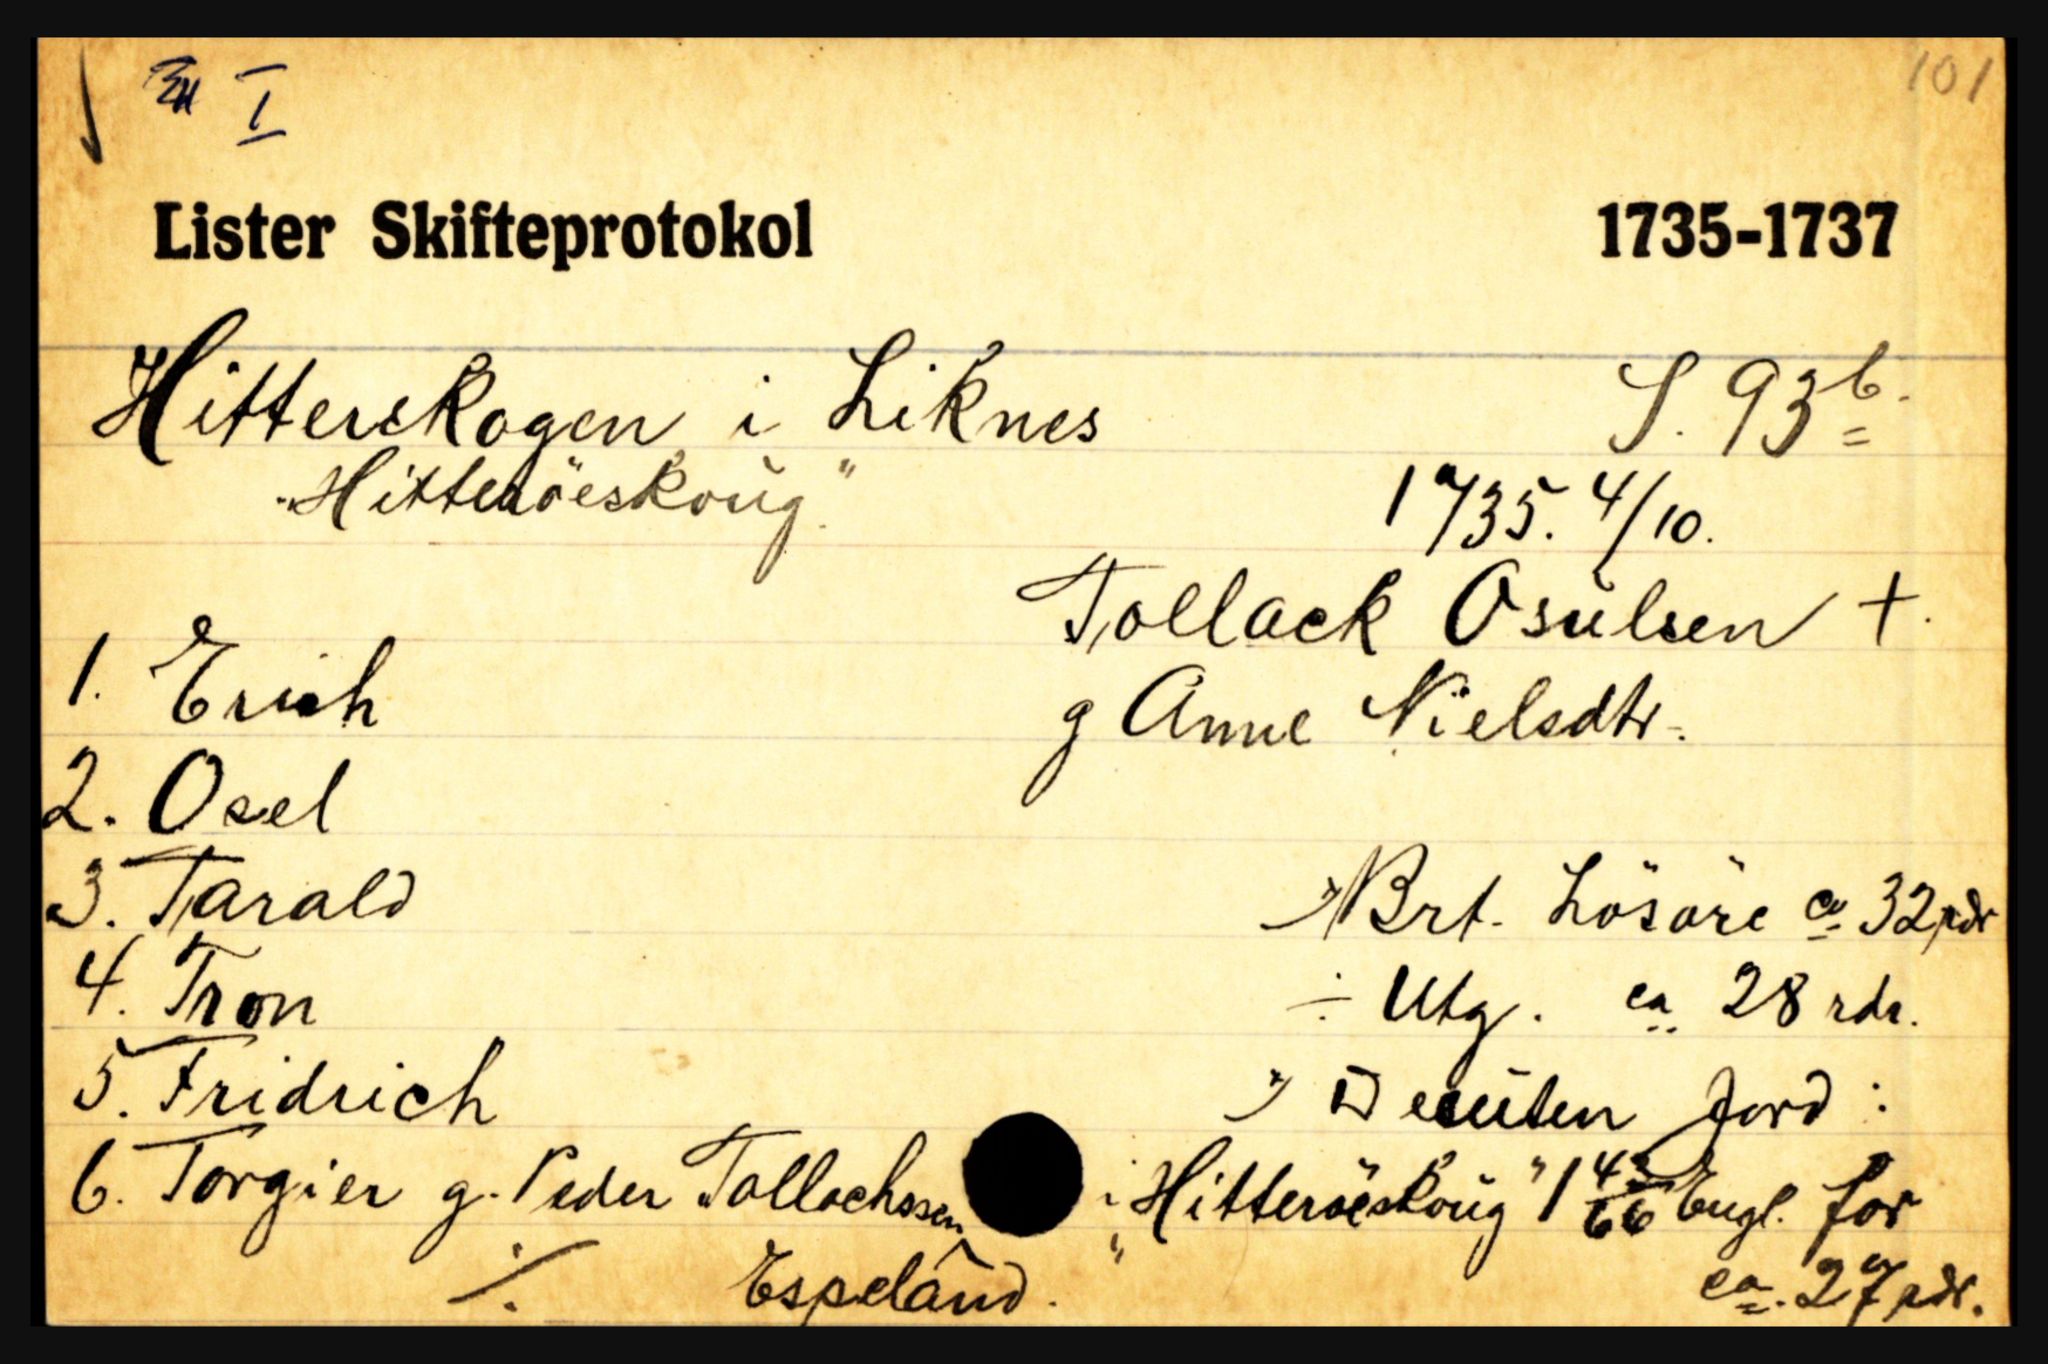 I
101
Lister Skifteprotokol 1735-1737
Hitterskogen i Liknes S. 93b.
"Hitteröeskoug"
1735. 4/10.
Tollack Osulsen †.
1. Erich
g Anne Nielsdtr.
2. Osel
3. Tarald
Brt. Lösöre ca 32 rdr
4. Tron
÷ Utg. ca 28 rdr.
5. Fridrich
Jord :
6. Torgier g. Peder Tollachssen
i "Hitteröeskoug" 1 Engl. for
% Espeland.
ca. 27 rdr.